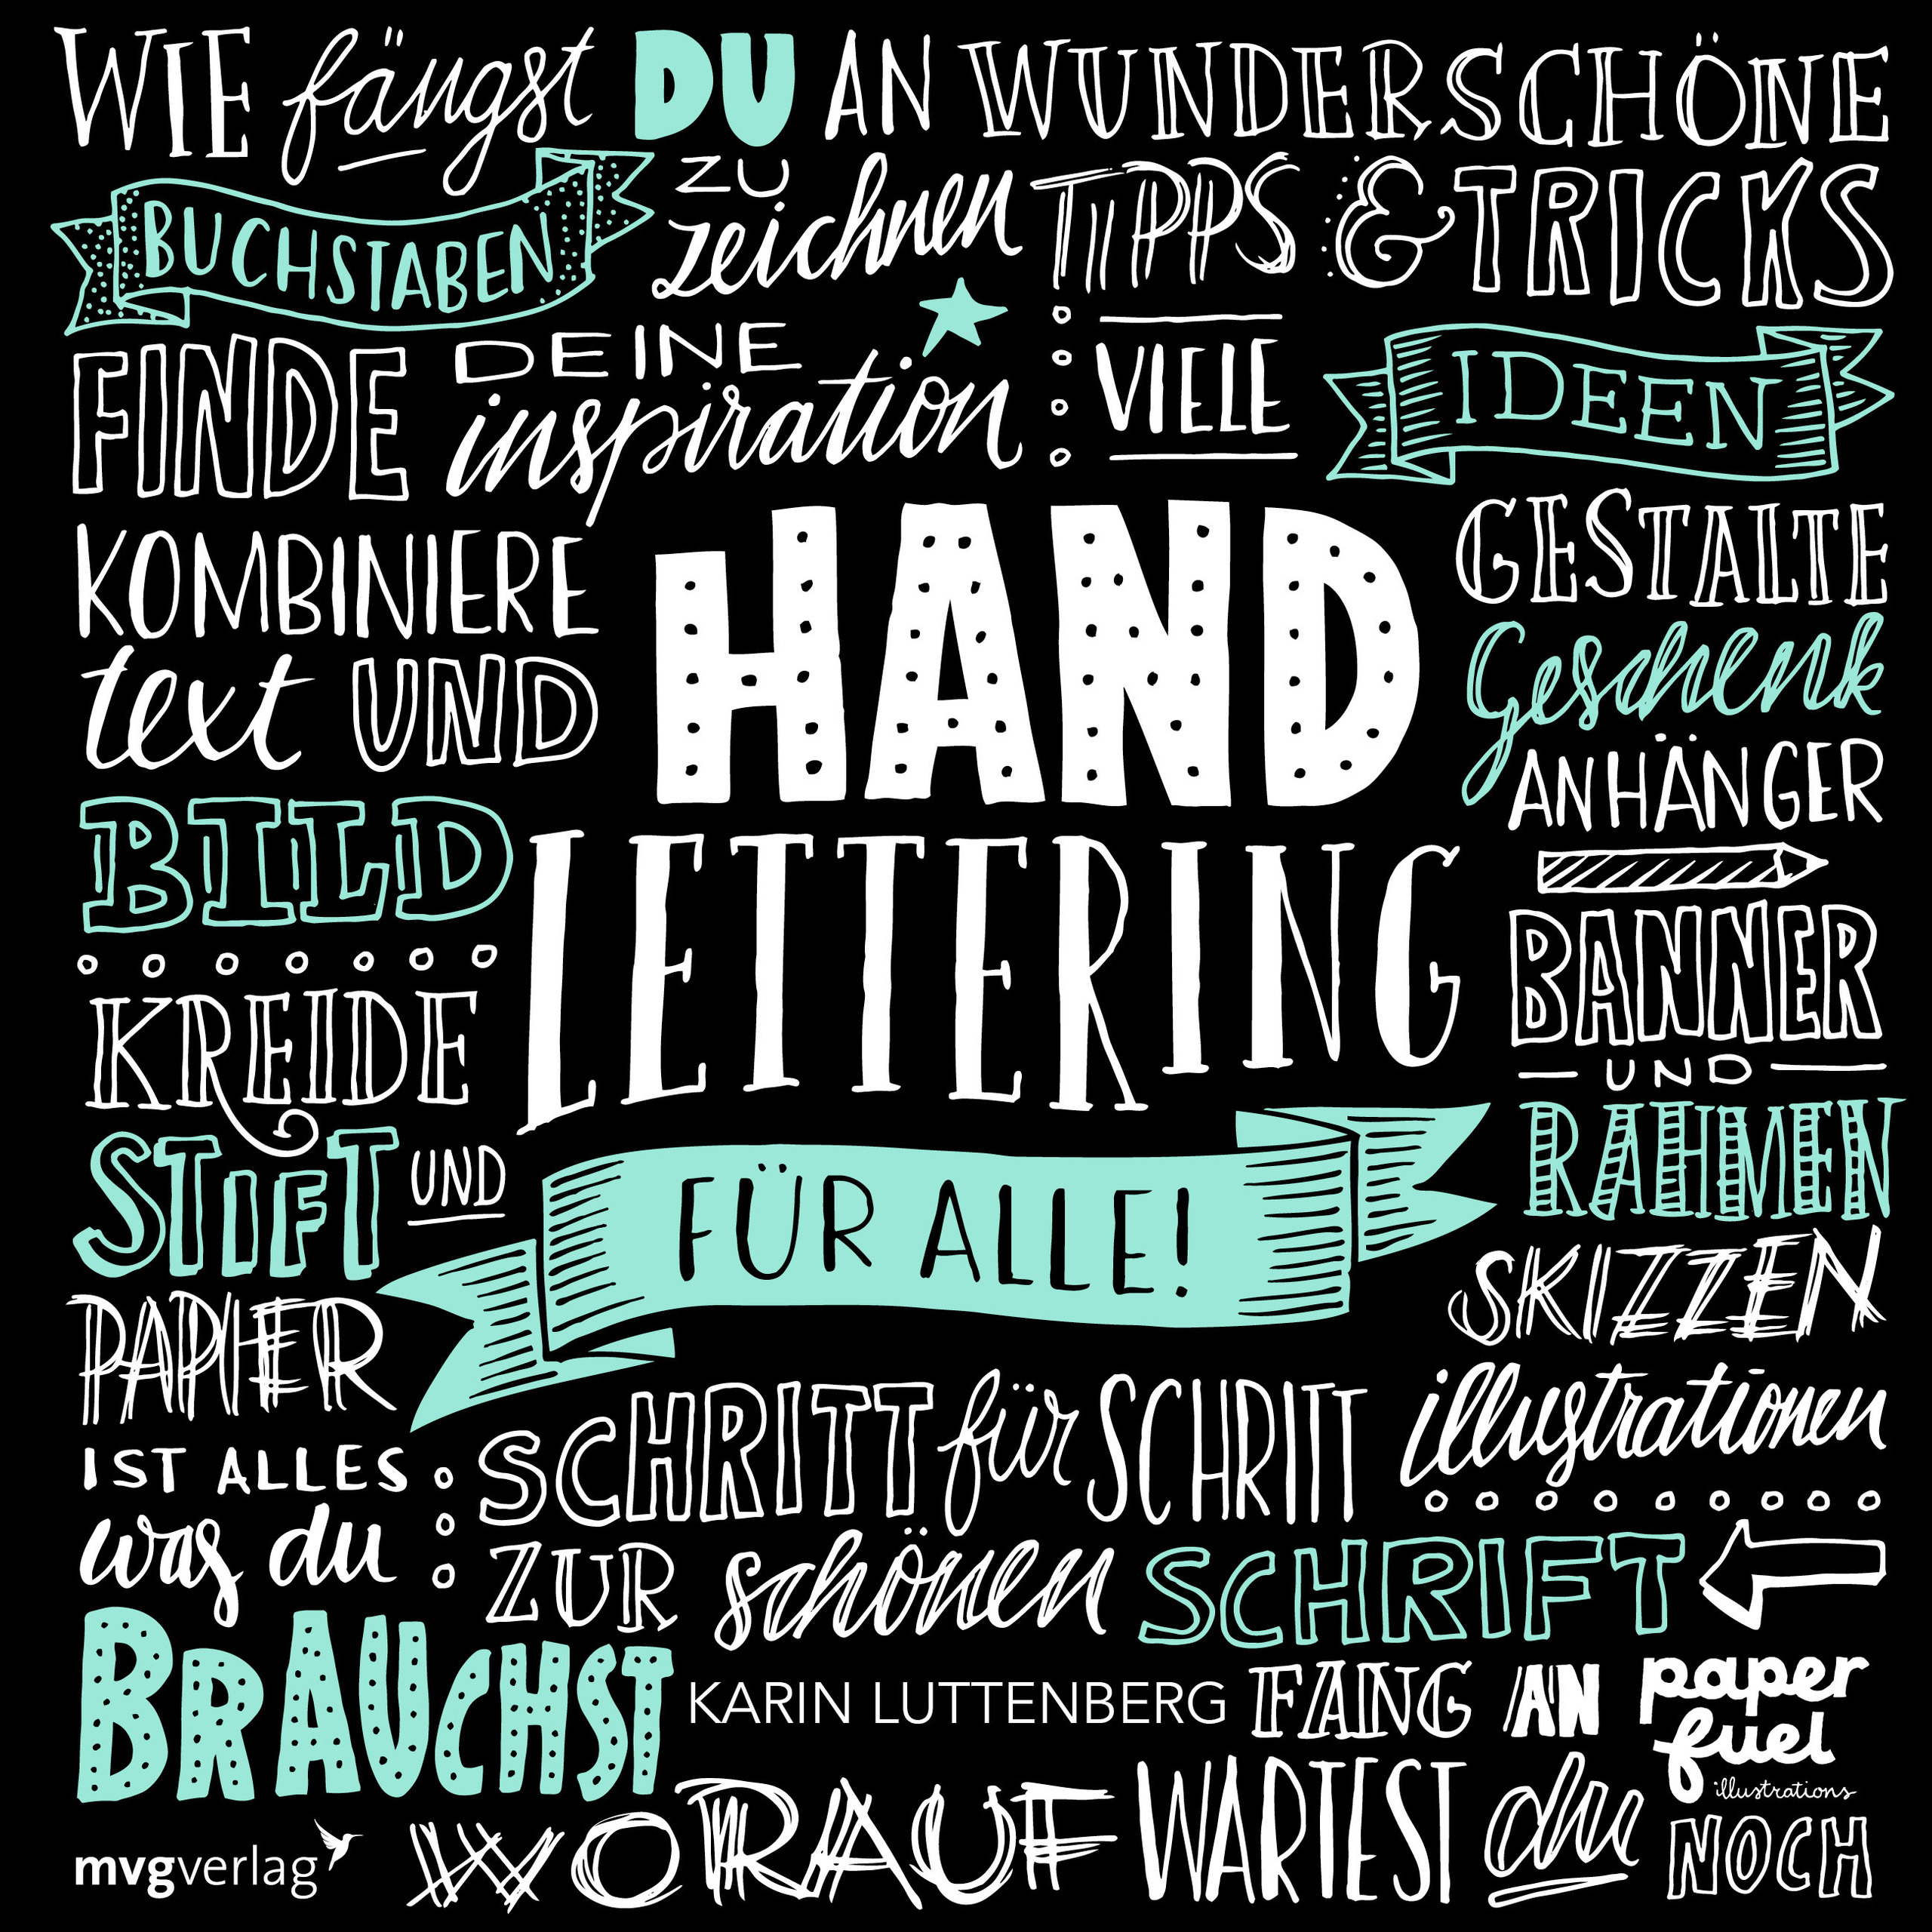 WIE fängst DU AN WUNDERSCHÖNE
BUCHSTABEN
ZU
zeichnen
TIPPS & TRICKS
FINDE
DEINE
inspiration
VIELE
IDEEN
KOMBINIERE
text UND
BILD
KREIDE
STIFT UND
PAPIER
IST ALLES
was du
BRAUCHST
HAND
LETTERING
FÜR ALLE!
GESTALTE
Geschenk
ANHÄNGER
BANNER
UND
RAHMEN
SKIZZEN
illustrationen
SCHRITT für SCHRITT
ZUR schönen SCHRIFT
KARIN LUTTENBERG
FANG AN
paper
fuel
illustrations
mvgverlag
WORAUF WARTEST du NOCH